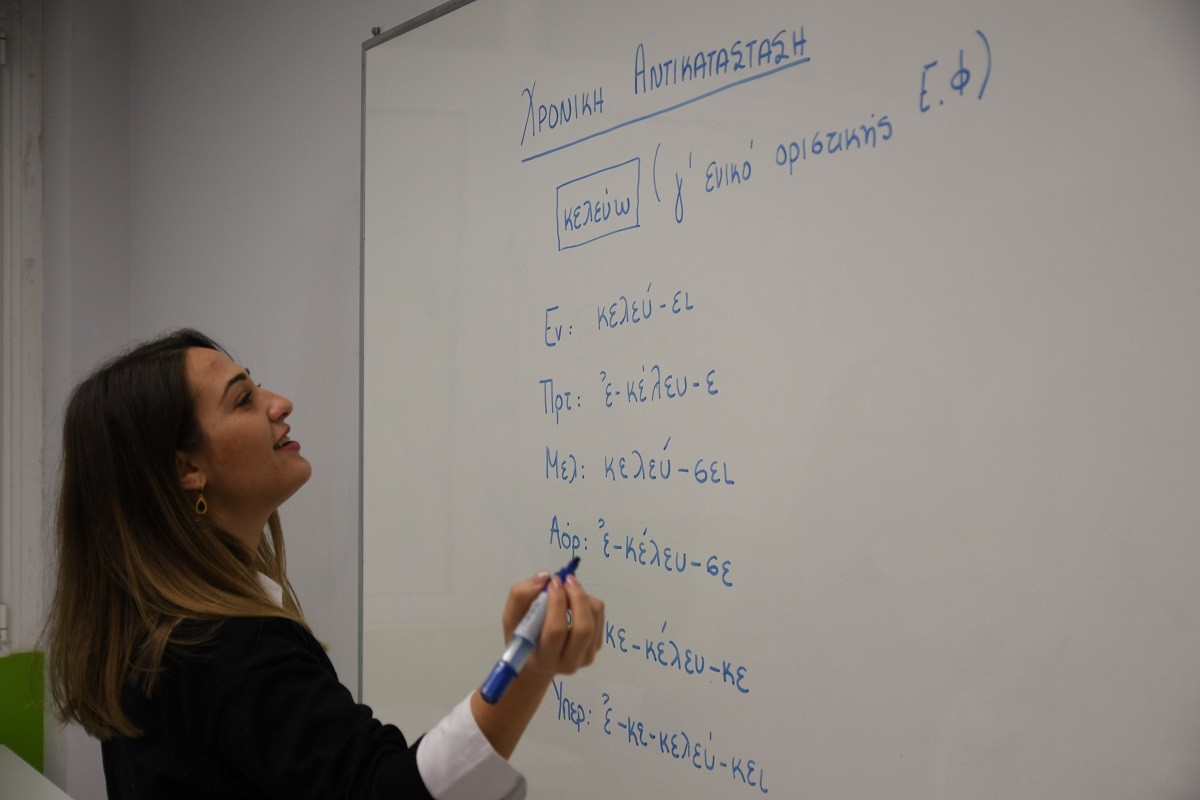 Χρονικη Αντικατασταση
κελεύω (γ' ενικό οριστικής Ε.Φ)
Εν: κελεύ-ει
Πρτ: ἐ-κέλευ-ε
Μελ: κελεύ-σει
Αόρ: ἐ-κέλευ-σε
κε-κέλευ-κε
Υπερ: ἐ-κε-κελεύ-κει